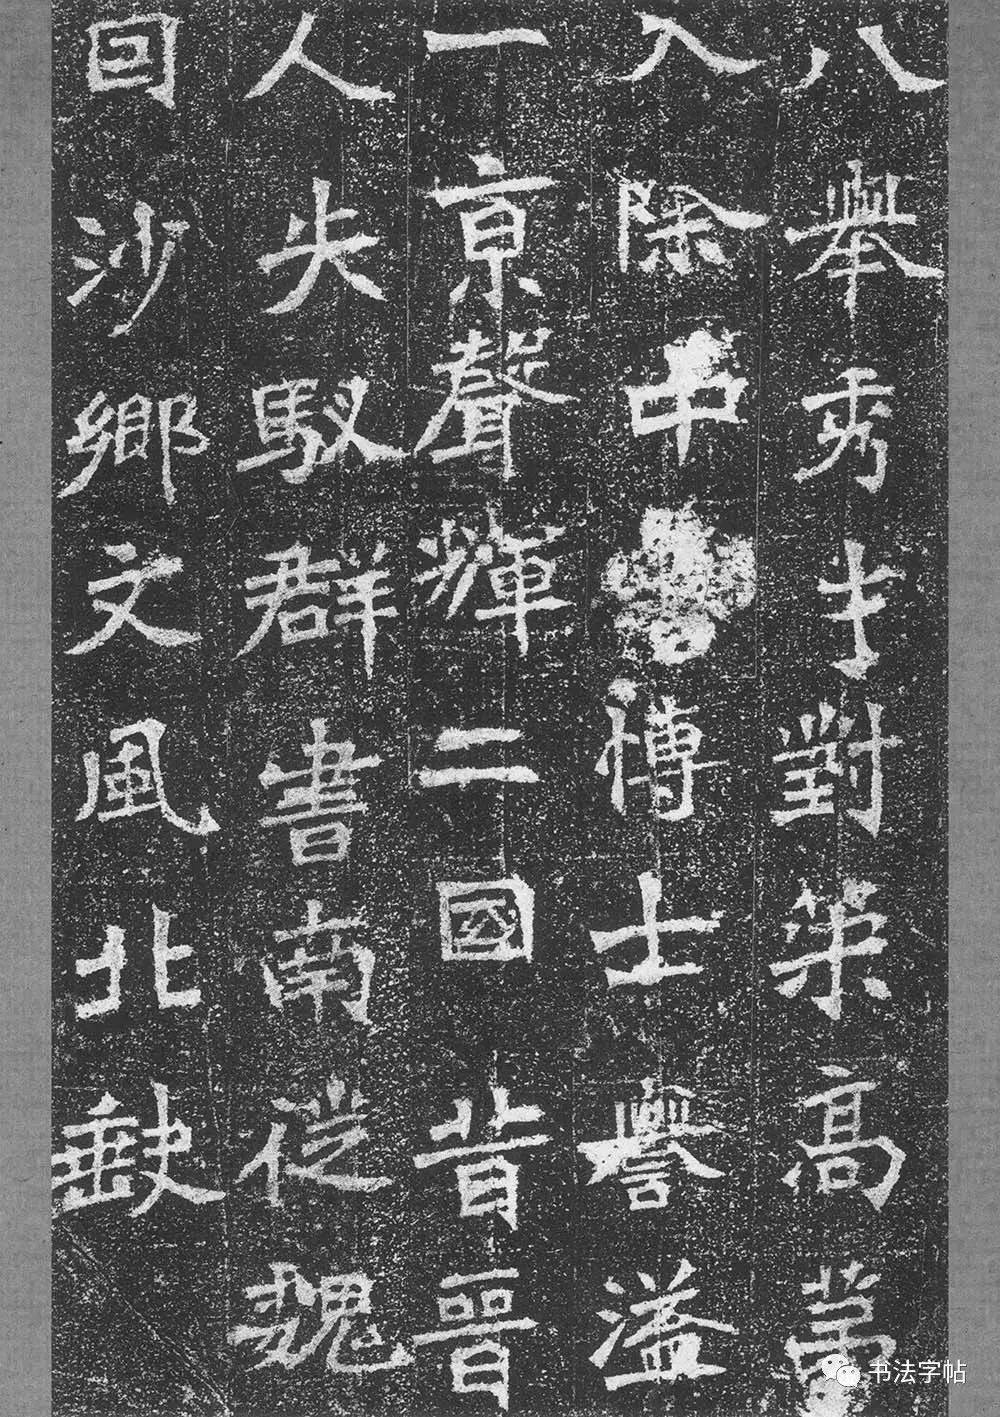 八舉秀才對策高苐
入除中書博士譽溢
一京聲輝二國昔晉
人失馭群書南從魏
因沙鄉文風北缺
书法字帖